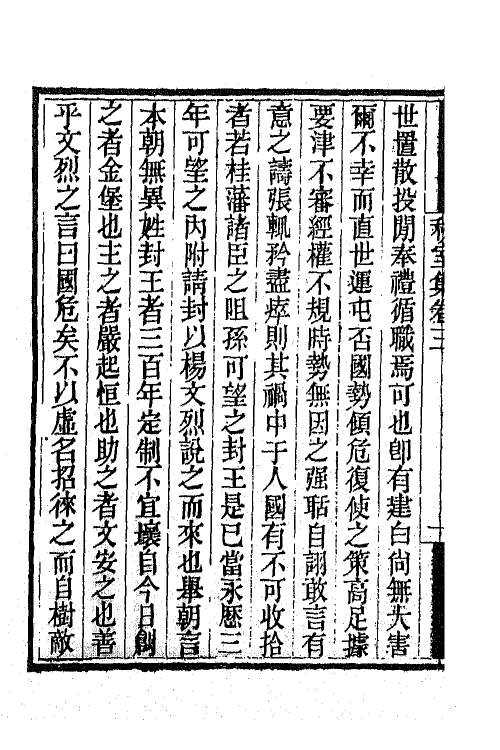 秋室集卷三
世置散投閒奉禮循職焉可也卽有建白尙無大害
爾不幸而直世運屯否國勢傾危復使之策高足據
要津不審經權不規時勢無因之强聒自詡敢言有
意之譸張輒矜盡瘁則其禍中于人國有不可收拾
者若桂藩諸臣之阻孫可望之封王是已當永歷三
年可望之內附請封以楊文烈說之而來也舉朝言
本朝無異姓封王者三百年定制不宜壞自今日倡
之者金堡也主之者嚴起恒也助之者文安之也善
乎文烈之言曰國危矣不以虛名招徠之而自樹敵